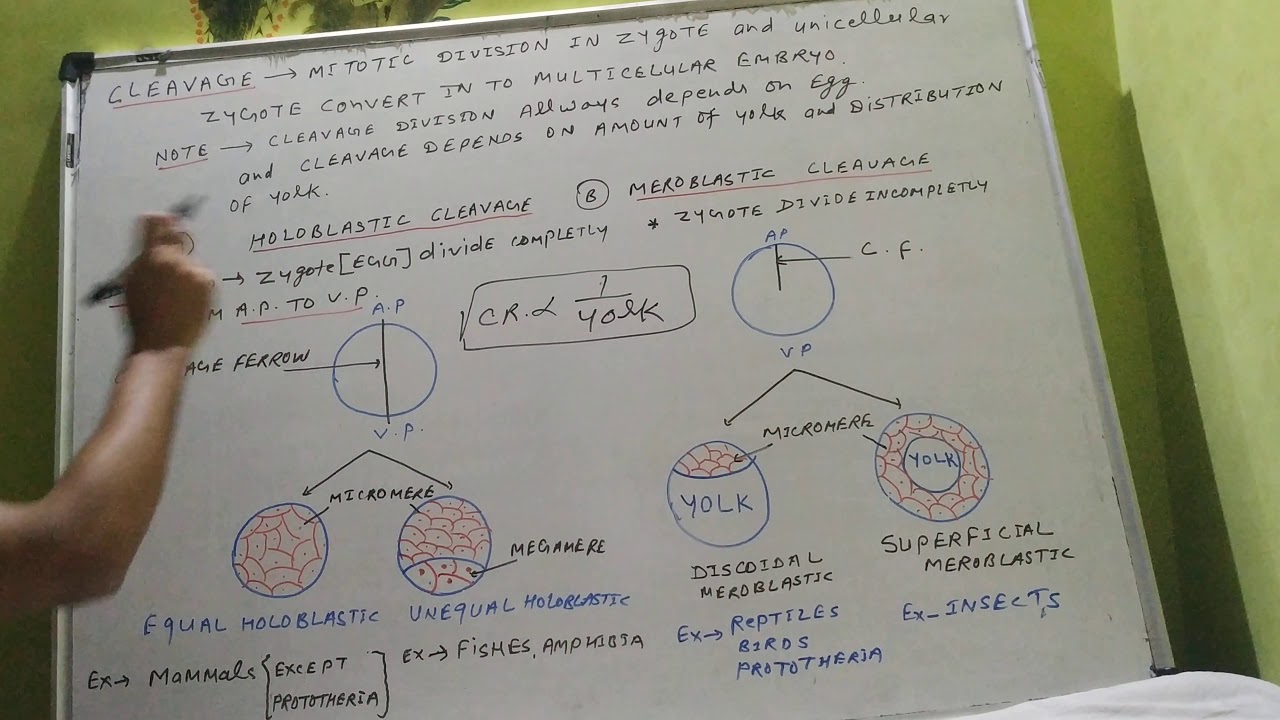 CLEAVAGE → MITOTIC DIVISION IN ZYGOTE and unicellular
ZYGOTE CONVERT IN TO MULTICELULAR EMBRYO.
NOTE → CLEAVAGE DIVISION Allways depends on Egg.
and CLEAVAGE DEPENDS ON AMOUNT OF yolk and DISTRIBUTION
OF yolk.
HOLOBLASTIC CLEAVAGE
→ Zygote [EGG] divide COMPLETLY
A.P. TO V.P.
FERROW
A.P
V.P.
C.R. ∝ 1/YOLK
B MEROBLASTIC CLEAVAGE
* ZYGOTE DIVIDE INCOMPLETLY
A.P
C.F.
V P
MICROMERE
MEGAMERE
EQUAL HOLOBLASTIC
Ex → MAMMALS {EXCEPT
PROTOTHERIA}
UNEQUAL HOLOBLASTIC
Ex → FISHES, AMPHIBIA
MICROMERE
YOLK
DISCOIDAL
MEROBLASTIC
Ex → REPTILES
BIRDS
PROTOTHERIA
YOLK
SUPERFICIAL
MEROBLASTIC
Ex – INSECTS